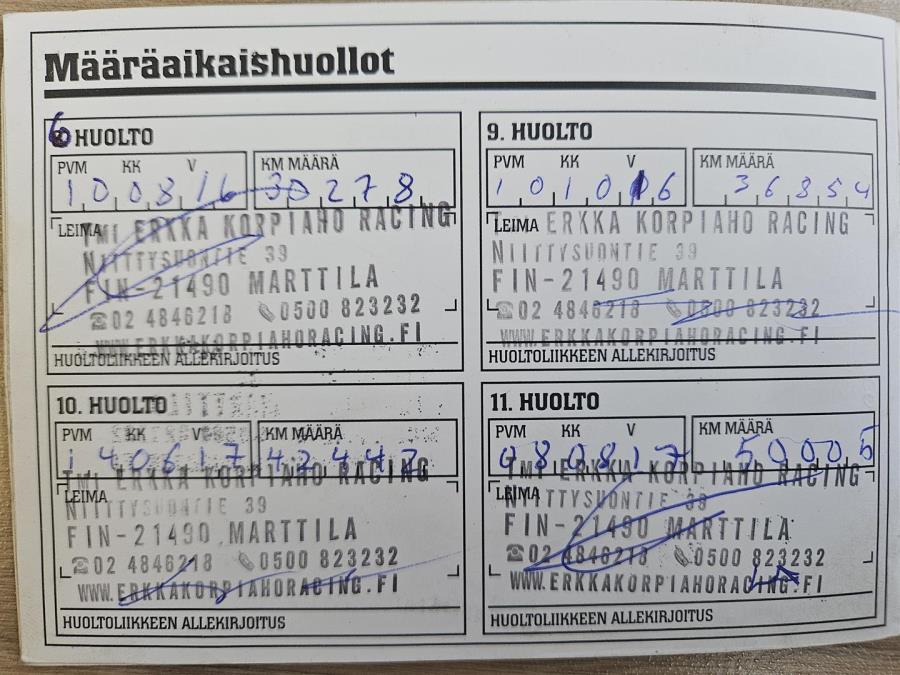 Määräaikaishuollot
6 HUOLTO
PVM KK V KM MÄÄRÄ
100816 30278
LEIMA
TMI ERKKA KORPIAHO RACING
NIITTYSUONTIE 39
FIN-21490 MARTTILA
☎02 4846218 0500 823232
WWW.ERKKAKORPIAHORACING.FI
HUOLTOLIIKKEEN ALLEKIRJOITUS
9. HUOLTO
PVM KK V KM MÄÄRÄ
101016 36854
LEIMA ERKKA KORPIAHO RACING
NIITTYSUONTIE 39
FIN-21490 MARTTILA
☎02 4846218 0500 823232
WWW.ERKKAKORPIAHORACING.FI
HUOLTOLIIKKEEN ALLEKIRJOITUS
10. HUOLTO
PVM KK V KM MÄÄRÄ
140617
TMI ERKKA KORPIAHO RACING
LEIMA
NIITTYSUONTIE 39
FIN-21490 MARTTILA
☎02 4846218 0500 823232
WWW.ERKKAKORPIAHORACING.FI
HUOLTOLIIKKEEN ALLEKIRJOITUS
11. HUOLTO
PVM KK V KM MÄÄRÄ
080817 50005
TMI ERKKA KORPIAHO RACING
LEIMA
NIITTYSUONTIE 39
FIN-21490 MARTTILA
☎02 4846218 0500 823232
WWW.ERKKAKORPIAHORACING.FI
HUOLTOLIIKKEEN ALLEKIRJOITUS